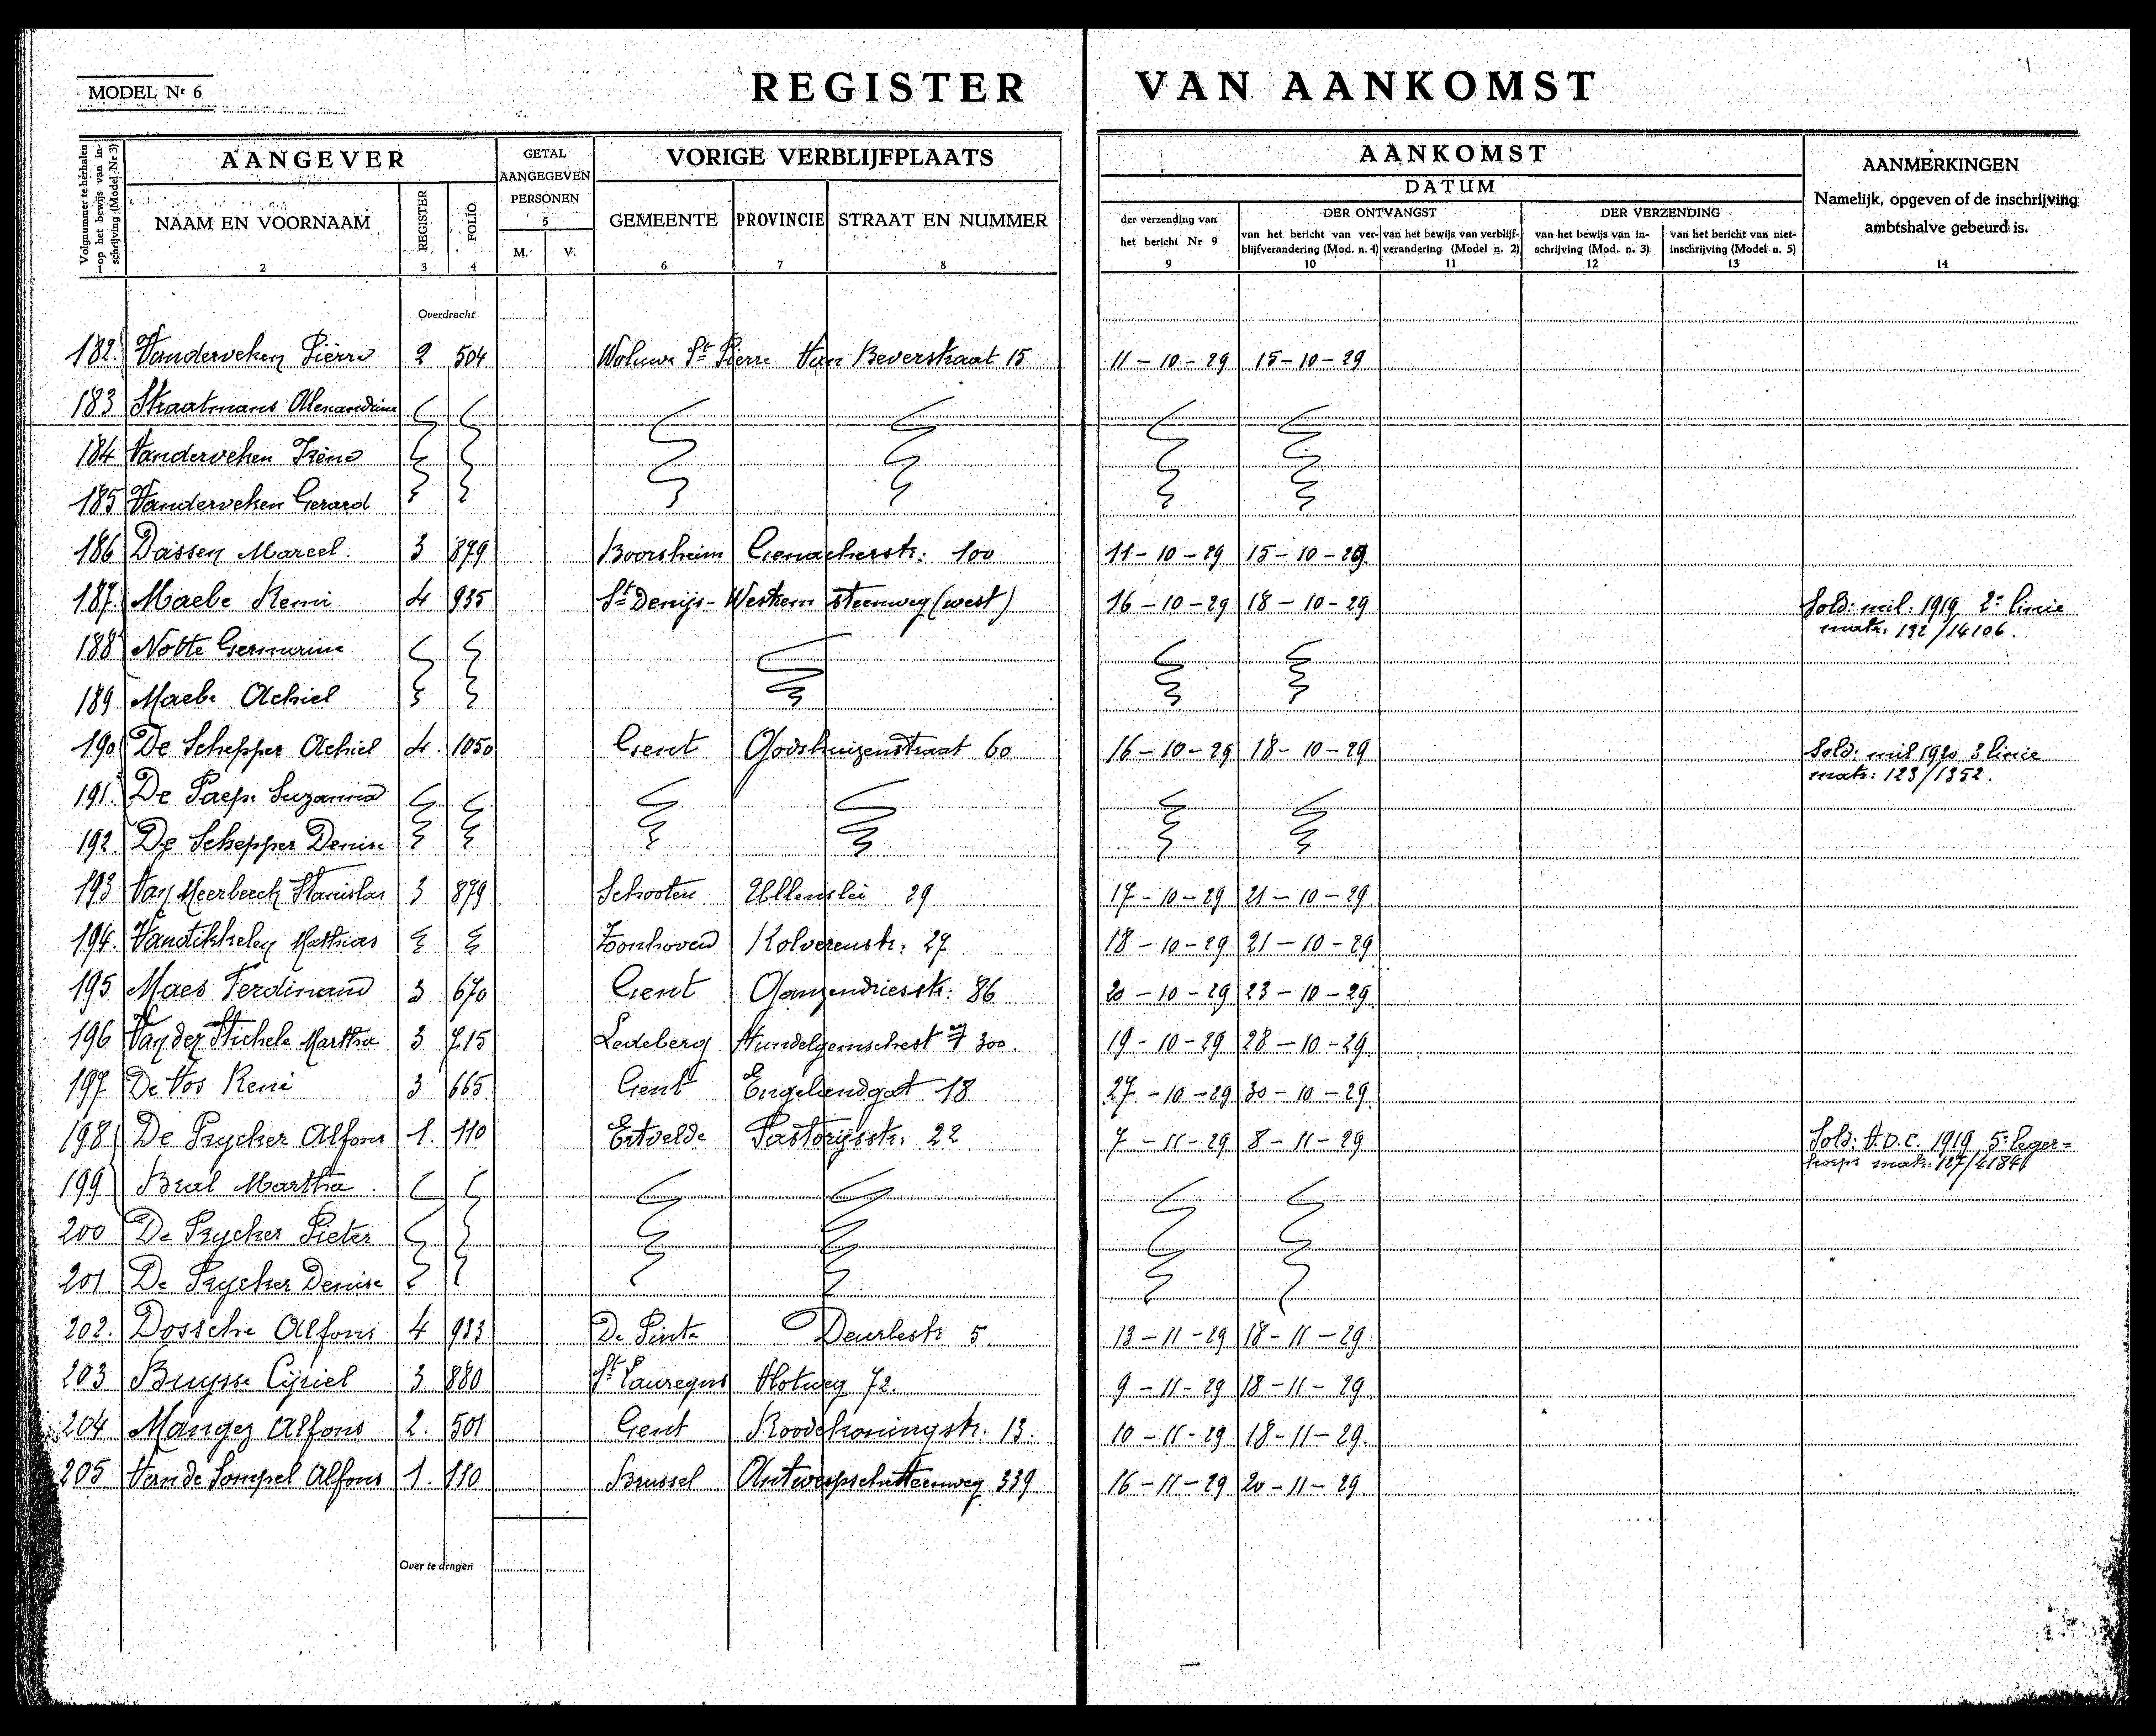 MODEL Nr 6
REGISTER VAN AANKOMST
Volgnummer te herhalen op het bewijs van inschrijving (Model Nr 3)
1
AANGEVER
NAAM EN VOORNAAM
2
REGISTER
3
FOLIO
4
GETAL AANGEGEVEN PERSONEN
5
M. V.
VORIGE VERBLIJFPLAATS
GEMEENTE
6
PROVINCIE
7
STRAAT EN NUMMER
8
AANKOMST
DATUM
der verzending van het bericht Nr 9
9
DER ONTVANGST
van het bericht van verblijfverandering (Mod. n. 4)
10
van het bewijs van verblijfverandering (Model n. 2)
11
DER VERZENDING
van het bewijs van inschrijving (Mod. n. 3)
12
van het bericht van niet-inschrijving (Model n. 5)
13
AANMERKINGEN
Namelijk, opgeven of de inschrijving ambtshalve gebeurd is.
14
Overdracht
182. Vanderveken Pierre 2 504 Woluwe St Pierre Van Beverstraat 15 11-10-29 15-10-29
183 Straatmans Alexandrine
184 Vanderveken Irène
185 Vanderveken Gerard
186 Daissen Marcel. 3 879 Boorsheim 100 11-10-29 15-10-29
187. Maebe Remi 4 935 St Denijs-Westrem steenweg (west) 16-10-29 18-10-29 Sold: mil. 1919 2e linie
matr. 132/14106.
188 Notte Germaine
189 Maebe Achiel
190 De Schepper Achiel 4. 1050 Gent Godshuizenstraat 60 16-10-29 18-10-29 Sold: mil 1920 3 linie
matr: 123/1352.
191. De Paepe Suzanna
192. De Schepper Denise
193 Van Meerbeeck Stanislas 3 879 Schooten 29 17-10-29 21-10-29
194. Vandikkelen Mathias Zonhoven Kolverenstr: 27 18-10-29 21-10-29
195 Maes Ferdinand 3 670 Gent Ganzendriesstr: 86 20-10-29 23-10-29
196 Van der Stichele Martha 3 715 Ledeberg Hundelgemschest 300. 19-10-29 28-10-29
197 De Vos René 3 665 Gent Engelandgat 18 27-10-29 30-10-29
198 De Prycker Alfons 1. 110 Ertvelde Pastorijstr: 22 7-11-29 8-11-29 Sold: A.D.C. 1919 5e leger=
korps matr: 127/41846
199 Bral Martha
200 De Prycker Pieter
201 De Prycker Denise
202. Dossche Alfons 4 933 De Pinte Deurlestr 5. 13-11-29 18-11-29
203 Buysse Cyriel 3 880 St Laureyns Hotweg 72. 9-11-29 18-11-29
204 Mangez Alfons 2. 501 Gent Roodekoningstr. 13. 10-11-29 18-11-29
205 Van de Sompel Alfons 1. 110 Brussel Antwerpschesteenweg 339 16-11-29 20-11-29
Over te dragen